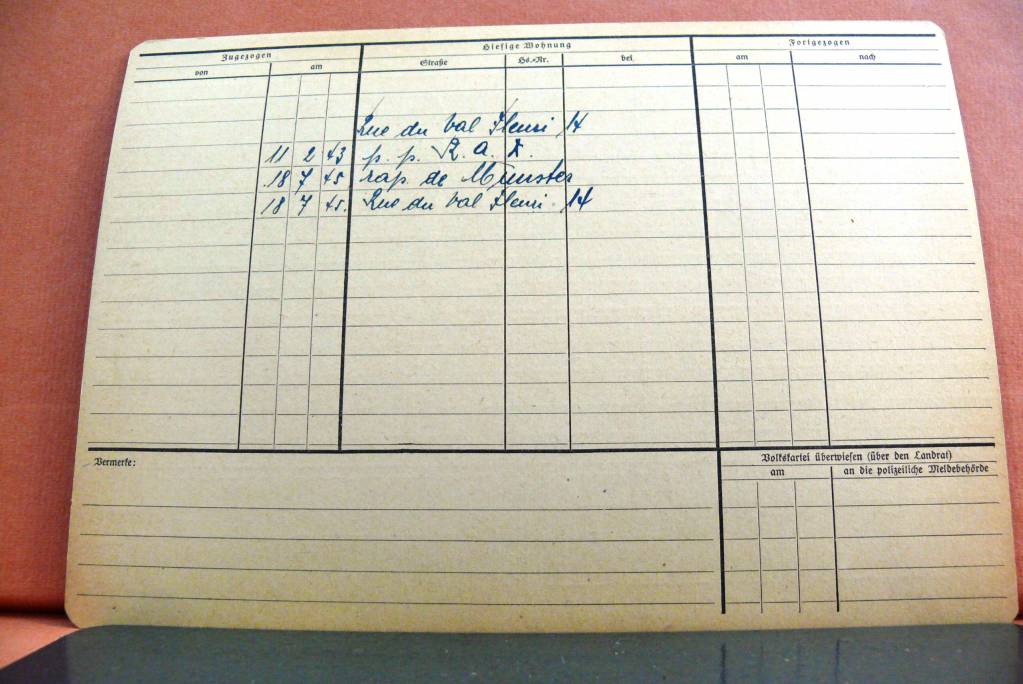 Zugezogen
Hiesige Wohnung
Fortgezogen
von
am
Straße
Hs.-Nr.
bei
am
nach
Rue du Val Fleuri 14
11 2 43 p. p. R. a. D.
18 7 45 rap. de Münster
18 7 45. Rue du Val Fleuri 14
Vermerke:
Volkskartei überwiesen (über den Landrat)
am
an die polizeiliche Meldebehörde